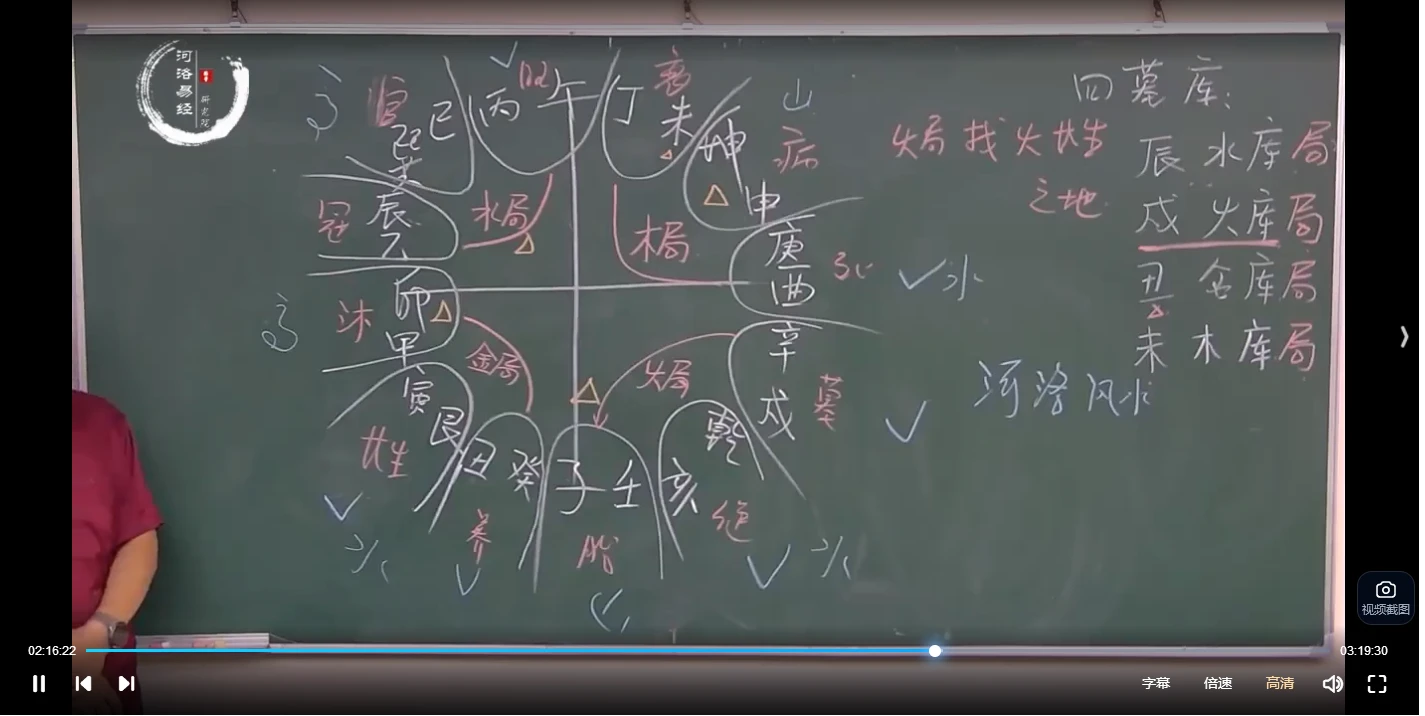 河洛易经
研究院
四墓库：
火局找火长生
之地
辰 水库局
戌 火库局
丑 金库局
未 木库局
河洛风水
官
巽巳
丙午
旺
丁未
衰
坤申
病
山
冠
辰乙
水局
木局
庚酉
死
水
沐
卯
甲
金局
火局
辛
戌
墓
寅
艮
长生
丑 癸
养
子 壬
胎
乾
亥
绝
水
水
02:16:22
03:19:30
字幕
倍速
高清
视频截图